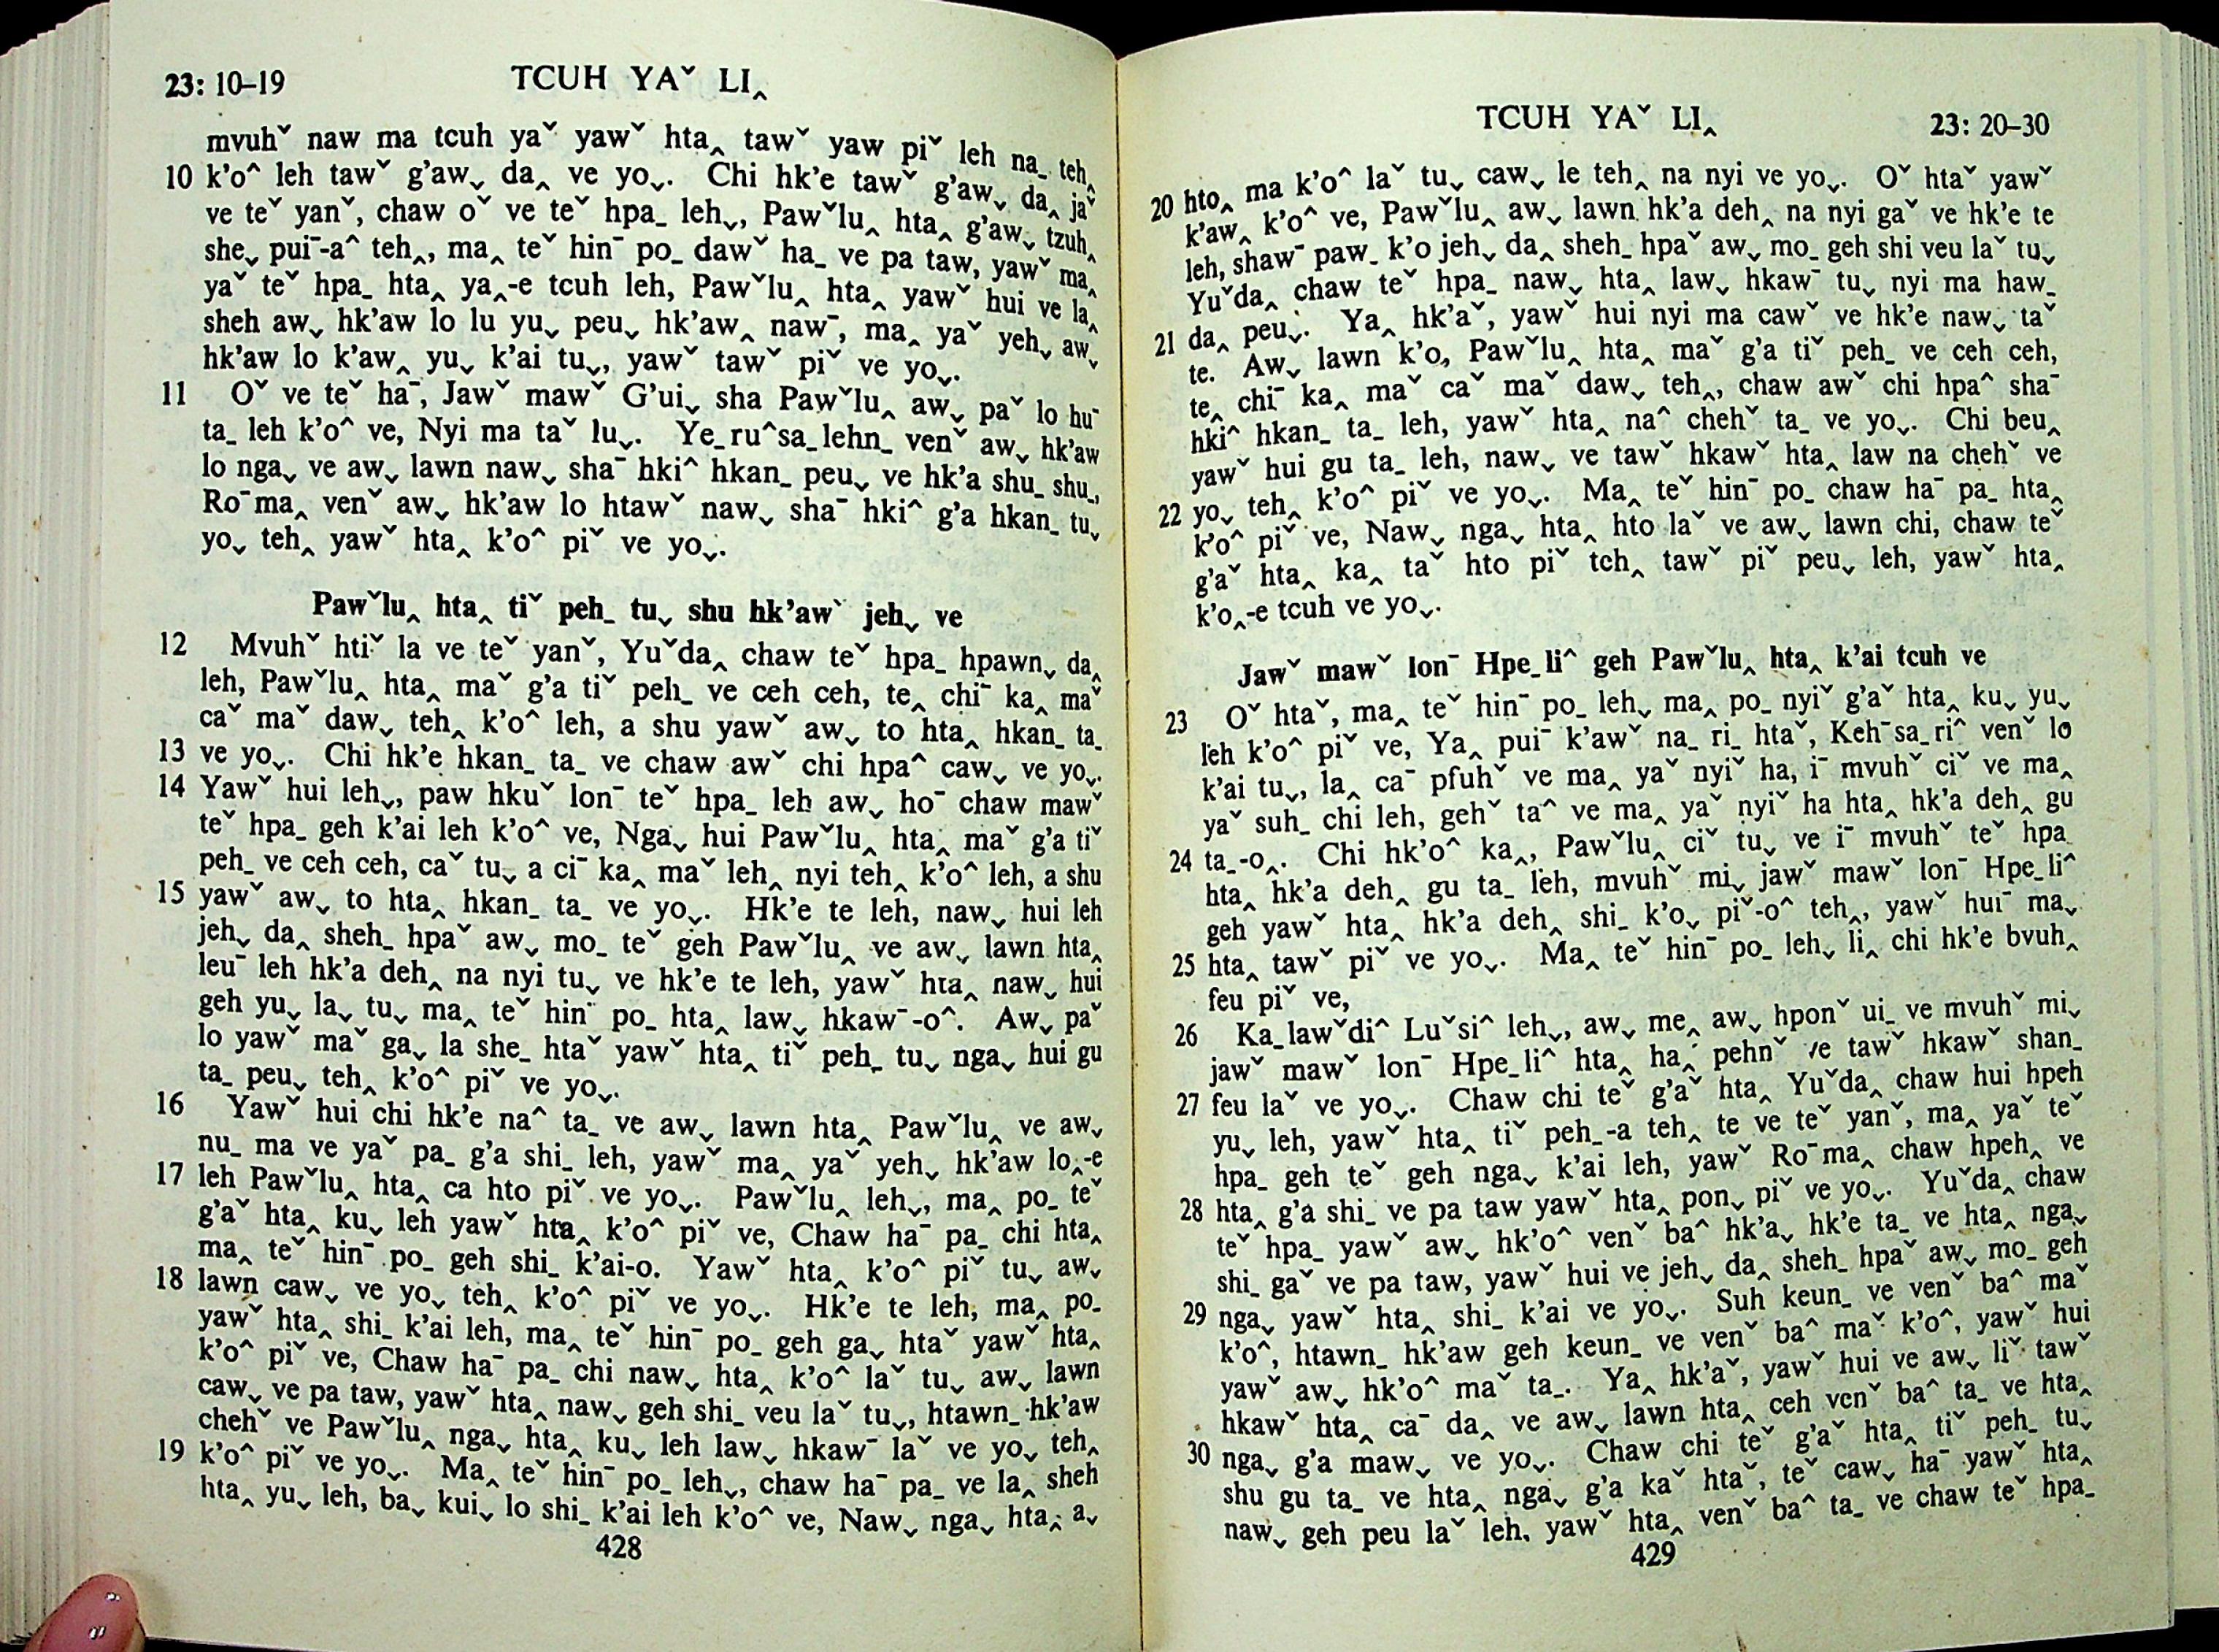 23: 10–19
TCUH YAˇ LI‸
mvuhˇ naw ma tcuh yaˇ yawˇ hta‸ tawˇ yaw piˇ leh na_ teh‸
10 k’o^ leh tawˇ g’aw⌄ da‸ ve yo⌄. Chi hk’e tawˇ g’aw⌄ da‸ jaˇ
ve teˇ yanˇ, chaw oˇ ve teˇ hpa_ leh⌄, Pawˇlu‸ hta‸ g’aw⌄ tzuh‸
she⌄ pui¯-a^ teh‸, ma‸ teˇ hin¯ po_ dawˇ ha_ ve pa taw, yawˇ ma‸
yaˇ teˇ hpa_ hta‸ ya‸-e tcuh leh, Pawˇlu‸ hta‸ yawˇ hui ve la‸
sheh aw⌄ hk’aw lo lu yu⌄ peu⌄ hk’aw‸ naw¯, ma‸ yaˇ yeh⌄ aw⌄
hk’aw lo k’aw‸ yu⌄ k’ai tu⌄, yawˇ tawˇ piˇ ve yo⌄.
11 Oˇ ve teˇ ha¯, Jawˇ mawˇ G’ui⌄ sha Pawˇlu‸ aw⌄ paˇ lo hu¯
ta_ leh k’o^ ve, Nyi ma taˇ lu⌄. Ye_ru^sa_lehn_ venˇ aw⌄ hk’aw
lo nga⌄ ve aw⌄ lawn naw⌄ sha¯ hki^ hkan_ peu⌄ ve hk’a shu_ shu_,
Ro¯ma‸ venˇ aw⌄ hk’aw lo htawˇ naw⌄ sha¯ hki^ g’a hkan_ tu⌄
yo⌄ teh‸ yawˇ hta‸ k’o^ piˇ ve yo⌄.
Pawˇlu‸ hta‸ tiˇ peh_ tu⌄ shu hk’aw` jeh⌄ ve
12 Mvuhˇ htiˇ la ve teˇ yanˇ, Yuˇda‸ chaw teˇ hpa_ hpawn⌄ da‸
leh, Pawˇlu‸ hta‸ maˇ g’a tiˇ peh_ ve ceh ceh, te‸ chi¯ ka‸ maˇ
caˇ maˇ daw⌄ teh‸ k’o^ leh, a shu yawˇ aw⌄ to hta‸ hkan_ ta_
13 ve yo⌄. Chi hk’e hkan_ ta_ ve chaw awˇ chi hpa^ caw⌄ ve yo⌄.
14 Yawˇ hui leh⌄, paw hkuˇ lon¯ teˇ hpa_ leh aw⌄ ho¯ chaw mawˇ
teˇ hpa_ geh k’ai leh k’o^ ve, Nga⌄ hui Pawˇlu‸ hta‸ maˇ g’a tiˇ
peh_ ve ceh ceh, caˇ tu⌄ a ci¯ ka‸ maˇ leh‸ nyi teh‸ k’o^ leh, a shu
15 yawˇ aw⌄ to hta‸ hkan_ ta_ ve yo⌄. Hk’e te leh, naw⌄ hui leh
jeh⌄ da‸ sheh_ hpaˇ aw⌄ mo_ teˇ geh Pawˇlu‸ ve aw⌄ lawn hta‸
leu¯ leh hk’a deh‸ na nyi tu⌄ ve hk’e te leh, yawˇ hta‸ naw⌄ hui
geh yu⌄ la⌄ tu⌄ ma‸ teˇ hin¯ po_ hta‸ law⌄ hkaw¯-o^. Aw⌄ paˇ
lo yawˇ maˇ ga⌄ la she_ htaˇ yawˇ hta‸ tiˇ peh_ tu⌄ nga⌄ hui gu
ta_ peu⌄ teh‸ k’o^ piˇ ve yo⌄.
16 Yawˇ hui chi hk’e na^ ta_ ve aw⌄ lawn hta‸ Pawˇlu‸ ve aw⌄
nu_ ma ve yaˇ pa_ g’a shi_ leh, yawˇ ma‸ yaˇ yeh⌄ hk’aw lo‸-e
17 leh Pawˇlu‸ hta‸ ca hto piˇ ve yo⌄. Pawˇlu‸ leh⌄, ma‸ po_ teˇ
g’aˇ hta‸ ku⌄ leh yawˇ hta‸ k’o^ piˇ ve, Chaw ha¯ pa_ chi hta‸
ma‸ teˇ hin¯ po_ geh shi_ k’ai-o. Yawˇ hta‸ k’o^ piˇ tu⌄ aw⌄
18 lawn caw⌄ ve yo⌄ teh‸ k’o^ piˇ ve yo⌄. Hk’e te leh, ma‸ po_
yawˇ hta‸ shi_ k’ai leh, ma‸ teˇ hin¯ po_ geh ga⌄ htaˇ yawˇ hta‸
k’o^ piˇ ve, Chaw ha¯ pa_ chi naw⌄ hta‸ k’o^ laˇ tu⌄ aw⌄ lawn
caw⌄ ve pa taw, yawˇ hta‸ naw⌄ geh shi_ veu laˇ tu⌄, htawn_ hk’aw
chehˇ ve Pawˇlu‸ nga⌄ hta‸ ku⌄ leh law⌄ hkaw¯ laˇ ve yo⌄ teh‸
19 k’o^ piˇ ve yo⌄. Ma‸ teˇ hin¯ po_ leh⌄, chaw ha¯ pa_ ve la‸ sheh
hta‸ yu⌄ leh, ba⌄ kui⌄ lo shi_ k’ai leh k’o^ ve, Naw⌄ nga⌄ hta‸ a⌄
428
TCUH YAˇ LI‸
23: 20–30
20 hto‸ ma k’o^ laˇ tu⌄ caw⌄ le teh‸ na nyi ve yo⌄. Oˇ htaˇ yawˇ
k’aw‸ k’o^ ve, Pawˇlu‸ aw⌄ lawn hk’a deh‸ na nyi gaˇ ve hk’e te
leh, shaw¯ paw_ k’o jeh⌄ da‸ sheh_ hpaˇ aw⌄ mo_ geh shi veu laˇ tu⌄
Yuˇda‸ chaw teˇ hpa_ naw⌄ hta‸ law⌄ hkaw¯ tu⌄ nyi ma haw_
21 da‸ peu⌄. Ya‸ hk’aˇ, yawˇ hui nyi ma cawˇ ve hk’e naw⌄ taˇ
te. Aw⌄ lawn k’o, Pawˇlu‸ hta‸ maˇ g’a tiˇ peh_ ve ceh ceh,
te‸ chi¯ ka‸ maˇ caˇ maˇ daw⌄ teh‸, chaw awˇ chi hpa^ sha¯
hki^ hkan_ ta_ leh, yawˇ hta‸ na^ chehˇ ta_ ve yo⌄. Chi beu‸
yawˇ hui gu ta_ leh, naw⌄ ve tawˇ hkawˇ hta‸ law na chehˇ ve
yo⌄ teh‸ k’o^ piˇ ve yo⌄. Ma‸ teˇ hin¯ po_ chaw ha¯ pa_ hta‸
22 k’o^ piˇ ve, Naw⌄ nga⌄ hta‸ hto laˇ ve aw⌄ lawn chi, chaw teˇ
g’aˇ hta‸ ka‸ taˇ hto piˇ tch‸ tawˇ piˇ peu⌄ leh, yawˇ hta‸
k’o‸-e tcuh ve yo⌄.
Jawˇ mawˇ lon¯ Hpe_li^ geh Pawˇlu‸ hta‸ k’ai tcuh ve
23 Oˇ htaˇ, ma‸ teˇ hin¯ po_ leh⌄ ma‸ po_ nyiˇ g’aˇ hta‸ ku⌄ yu⌄
leh k’o^ piˇ ve, Ya‸ pui¯ k’awˇ na_ ri_ htaˇ, Keh¯sa_ri^ venˇ lo
k’ai tu⌄, la‸ ca¯ pfuhˇ ve ma‸ yaˇ nyiˇ ha, i¯ mvuhˇ ciˇ ve ma‸
yaˇ suh_ chi leh, gehˇ ta^ ve ma‸ yaˇ nyiˇ ha hta‸ hk’a deh‸ gu
24 ta_-o‸. Chi hk’o^ ka‸, Pawˇlu‸ ciˇ tu⌄ ve i¯ mvuhˇ teˇ hpa_
hta‸ hk’a deh‸ gu ta_ leh, mvuhˇ mi⌄ jawˇ mawˇ lon¯ Hpe_li^
geh yawˇ hta‸ hk’a deh‸ shi_ k’o⌄ piˇ-o^ teh‸, yawˇ hui¯ ma⌄
25 hta‸ tawˇ piˇ ve yo⌄. Ma‸ teˇ hin¯ po_ leh⌄ li‸ chi hk’e bvuh‸
feu piˇ ve,
26 Ka_lawˇdi^ Luˇsi^ leh⌄, aw⌄ me‸ aw⌄ hponˇ ui_ ve mvuhˇ mi⌄
jawˇ mawˇ lon¯ Hpe_li^ hta‸ ha‸ pehnˇ ve tawˇ hkawˇ shan_
27 feu laˇ ve yo⌄. Chaw chi teˇ g’aˇ hta‸ Yuˇda‸ chaw hui hpeh
yu⌄ leh, yawˇ hta‸ tiˇ peh_-a teh‸ te ve teˇ yanˇ, ma‸ yaˇ teˇ
hpa_ geh teˇ geh nga⌄ k’ai leh, yawˇ Ro¯ma‸ chaw hpeh‸ ve
28 hta‸ g’a shi_ ve pa taw yawˇ hta‸ pon⌄ piˇ ve yo⌄. Yuˇda‸ chaw
teˇ hpa_ yawˇ aw⌄ hk’o^ venˇ ba^ hk’a⌄ hk’e ta_ ve hta‸ nga⌄
shi_ gaˇ ve pa taw, yawˇ hui ve jeh⌄ da‸ sheh_ hpaˇ aw⌄ mo_ geh
29 nga⌄ yawˇ hta‸ shi_ k’ai ve yo⌄. Suh keun_ ve venˇ ba^ maˇ
k’o^, htawn_ hk’aw geh keun_ ve venˇ ba^ maˇ k’o^, yawˇ hui
yawˇ aw⌄ hk’o^ maˇ ta_. Ya‸ hk’aˇ, yawˇ hui ve aw⌄ liˇ tawˇ
hkawˇ hta‸ ca¯ da‸ ve aw⌄ lawn hta‸ ceh venˇ ba^ ta_ ve hta‸
30 nga⌄ g’a maw⌄ ve yo⌄. Chaw chi teˇ g’aˇ hta‸ tiˇ peh_ tu⌄
shu gu ta_ ve hta‸ nga⌄ g’a kaˇ htaˇ, teˇ caw⌄ ha¯ yawˇ hta‸
naw⌄ geh peu laˇ leh. yawˇ hta‸ venˇ ba^ ta_ ve chaw teˇ hpa_
429